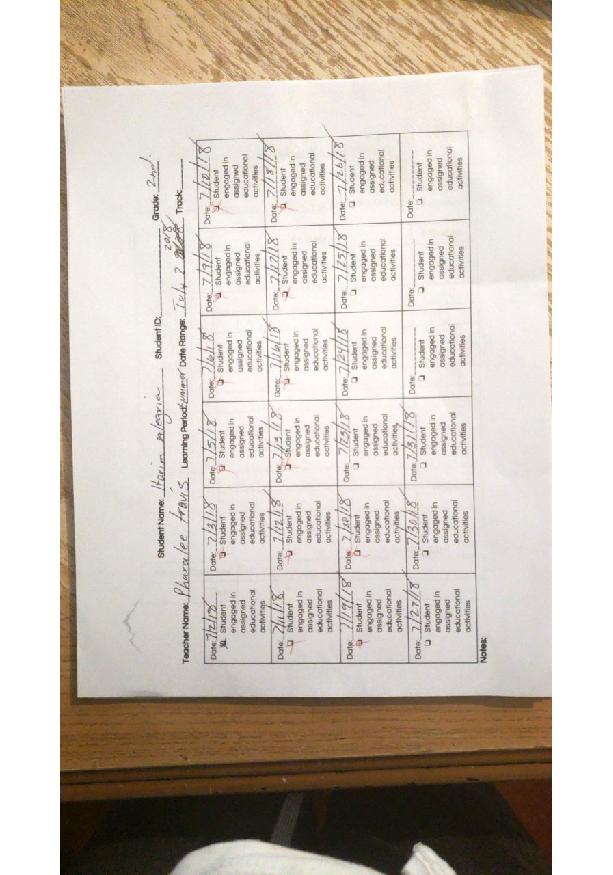 Student Name: Student ID: Grade: 2nd
Teacher Name: Pharalee Travis Learning Period: Summer Date Range: July 2 2018 Track:
Date: 7/2/18 Date: 7/3/18 Date: 7/5/18 Date: 7/6/18 Date: 7/9/18 Date: 7/10/18
Student Student Student Student Student Student
engaged in engaged in engaged in engaged in engaged in engaged in
assigned assigned assigned assigned assigned assigned
educational educational educational educational educational educational
activities activities activities activities activities activities
Date: 7/11/18 Date: 7/12/18 Date: 7/13/18 Date: 7/16/18 Date: 7/17/18 Date: 7/18/18
Student Student Student Student Student Student
engaged in engaged in engaged in engaged in engaged in engaged in
assigned assigned assigned assigned assigned assigned
educational educational educational educational educational educational
activities activities activities activities activities activities
Date: 7/19/18 Date: 7/20/18 Date: 7/23/18 Date: 7/24/18 Date: 7/25/18 Date: 7/26/18
Student Student Student Student Student Student
engaged in engaged in engaged in engaged in engaged in engaged in
assigned assigned assigned assigned assigned assigned
educational educational educational educational educational educational
activities activities activities activities activities activities
Date: 7/27/18 Date: 7/30/18 Date: 7/31/18 Date: Date: Date:
Student Student Student Student Student Student
engaged in engaged in engaged in engaged in engaged in engaged in
assigned assigned assigned assigned assigned assigned
educational educational educational educational educational educational
activities activities activities activities activities activities
Notes: